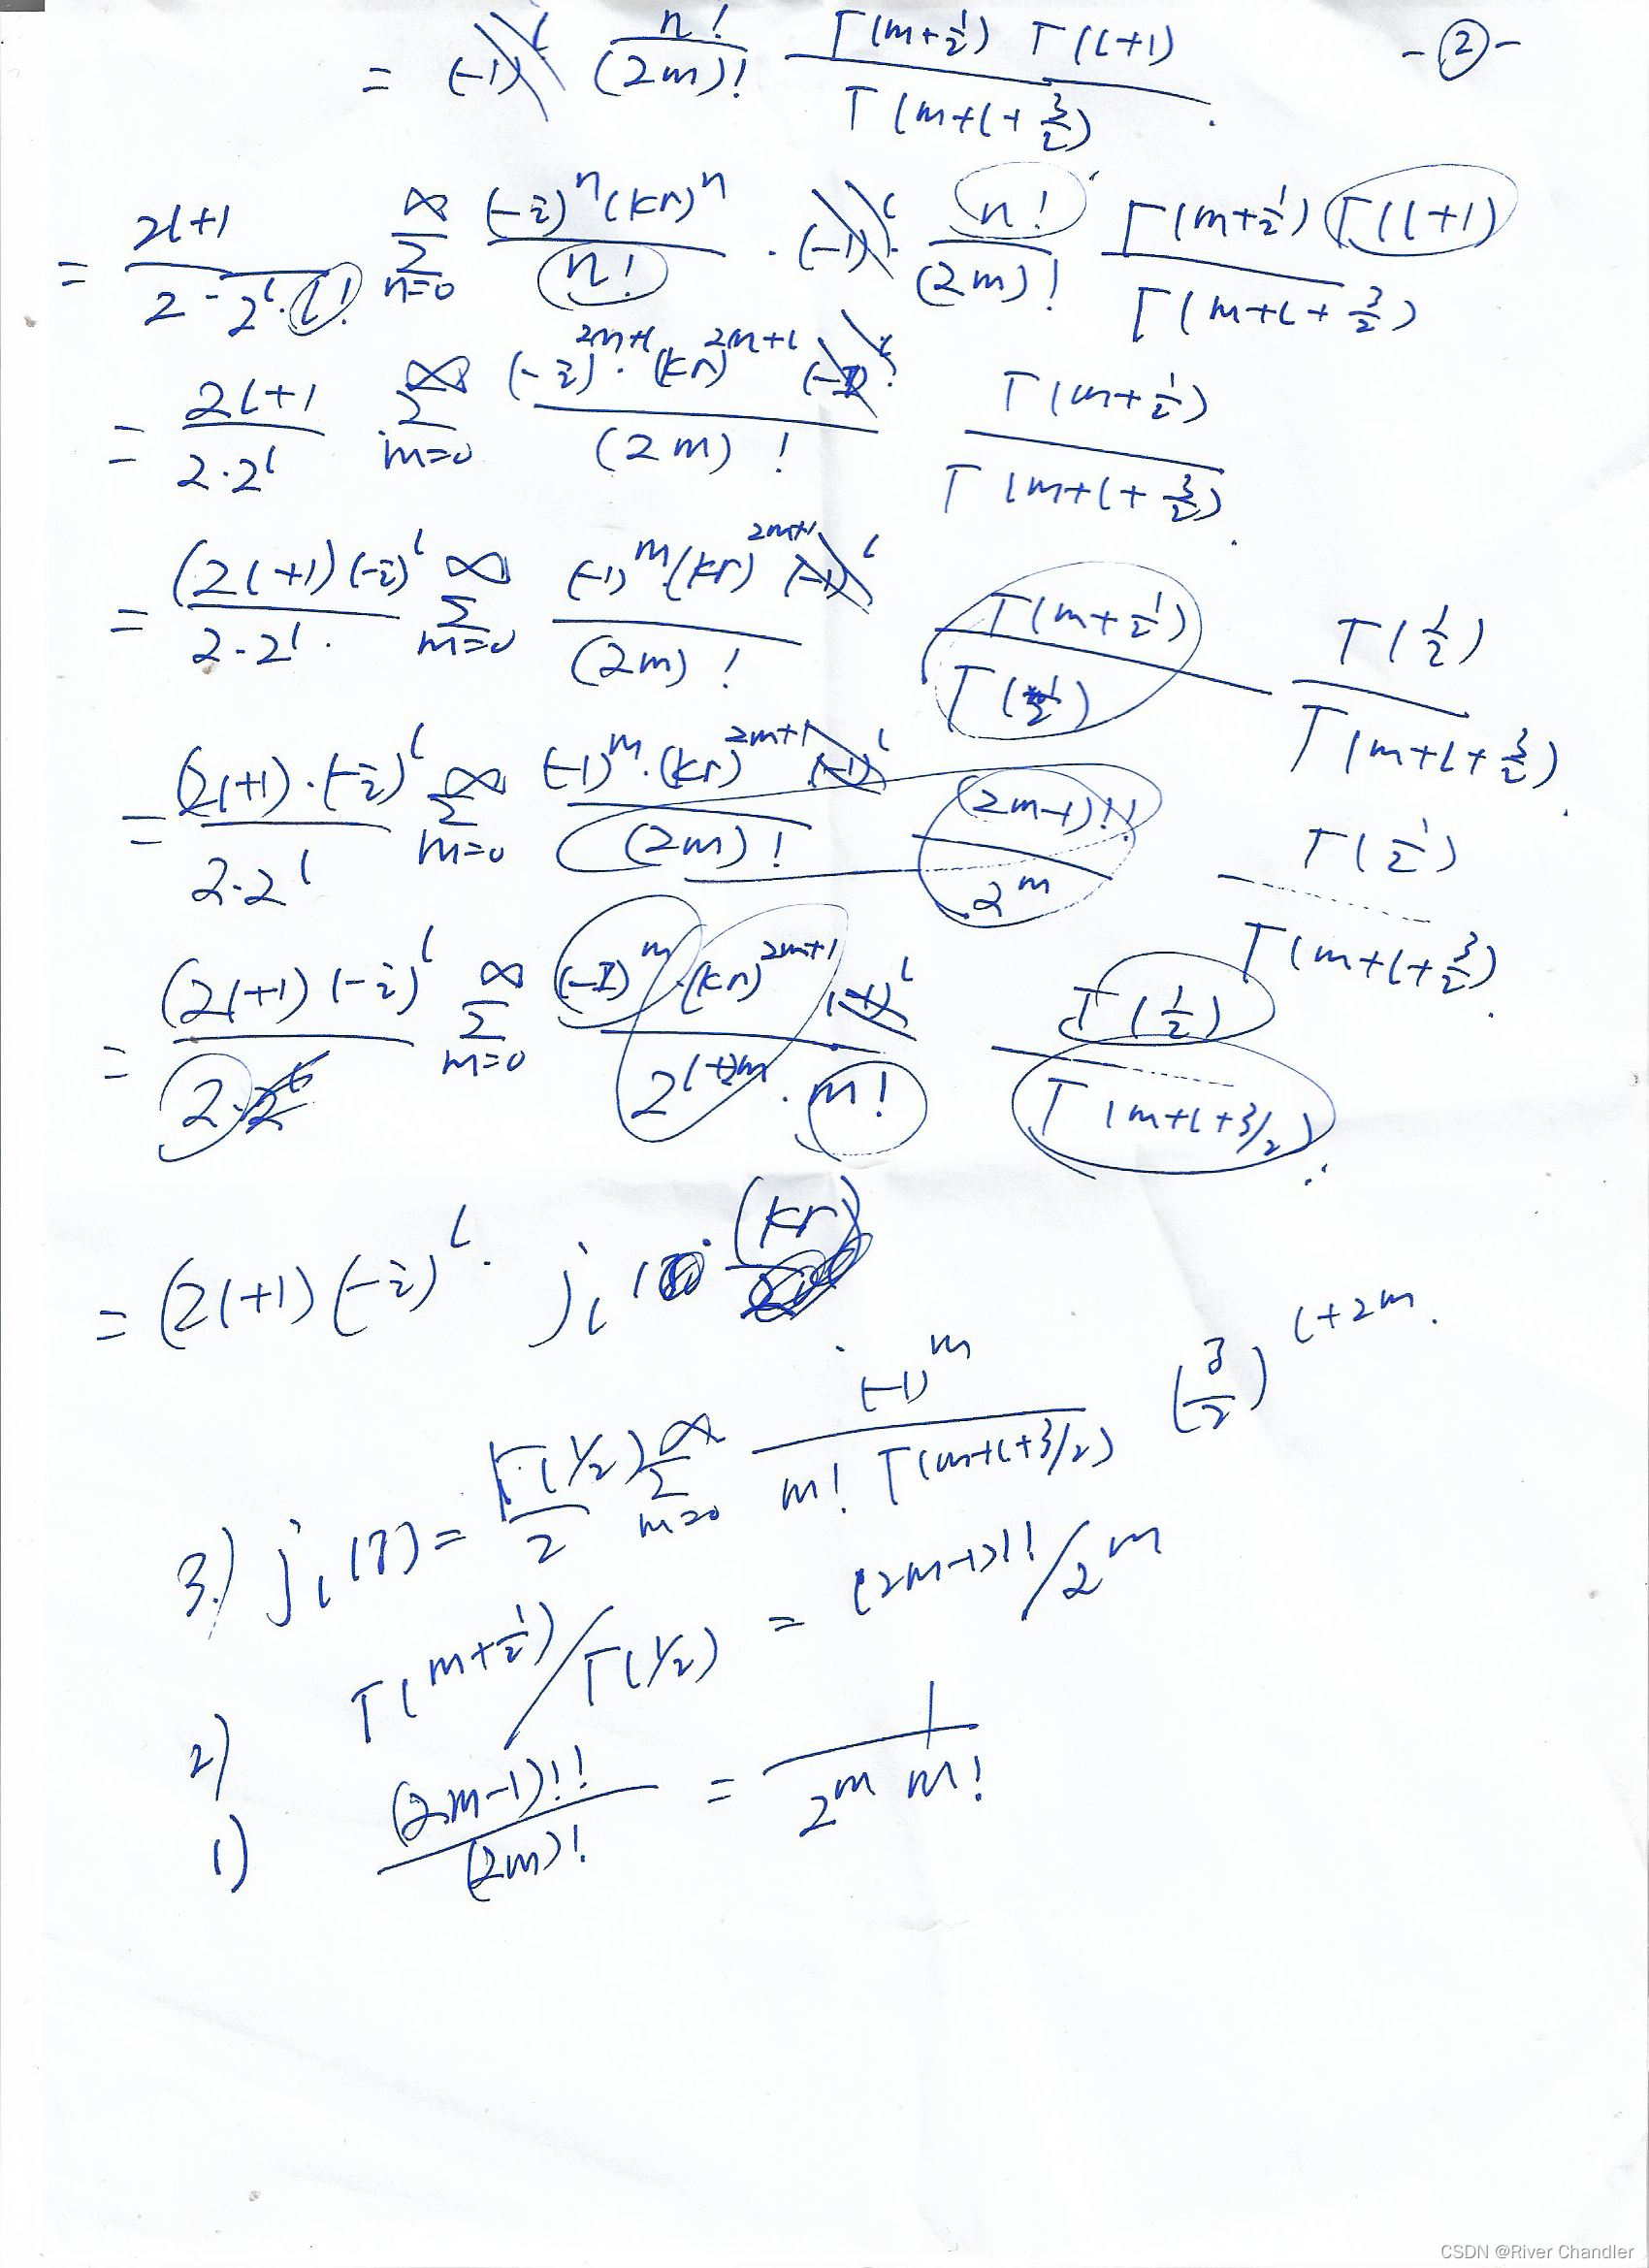 = (-1)^l n!/(2m)! Γ(m+1/2) Γ(l+1)/Γ(m+l+3/2). -②-
= 2l+1/2·2^l·l! ∑_{n=0}^∞ (-i)^n (kr)^n/n! · (-1)^l · n!/(2m)! Γ(m+1/2) Γ(l+1)/Γ(m+l+3/2)
= 2l+1/2·2^l ∑_{m=0}^∞ (-i)^{2m+l} · (kr)^{2m+l} (-1)^l/(2m)! Γ(m+1/2)/Γ(m+l+3/2).
= (2l+1)(-i)^l/2·2^l. ∑_{m=0}^∞ (-1)^m·(kr)^{2m+l} (-1)^l/(2m)! Γ(m+1/2)/Γ(1/2) Γ(1/2)/Γ(m+l+3/2).
= (2l+1)·(-i)^l/2·2^l ∑_{m=0}^∞ (-1)^m·(kr)^{2m+l} (-1)^l/(2m)! (2m-1)!!/2^m Γ(1/2)/Γ(m+l+3/2).
= (2l+1)(-i)^l/2·2^l ∑_{m=0}^∞ (-1)^m·(kr)^{2m+l} (-1)^l/2^{l+2m}·m! Γ(1/2)/Γ(m+l+3/2).
= (2l+1)(-i)^l· j_l (kr)
3.) j_l(z) = Γ(1/2)/2 ∑_{m=0}^∞ (-1)^m/m! Γ(m+l+3/2) (z/2)^{l+2m}.
2) Γ(m+1/2)/Γ(1/2) = (2m-1)!!/2^m
1) (2m-1)!!/(2m)! = 1/2^m m!
CSDN @River Chandler